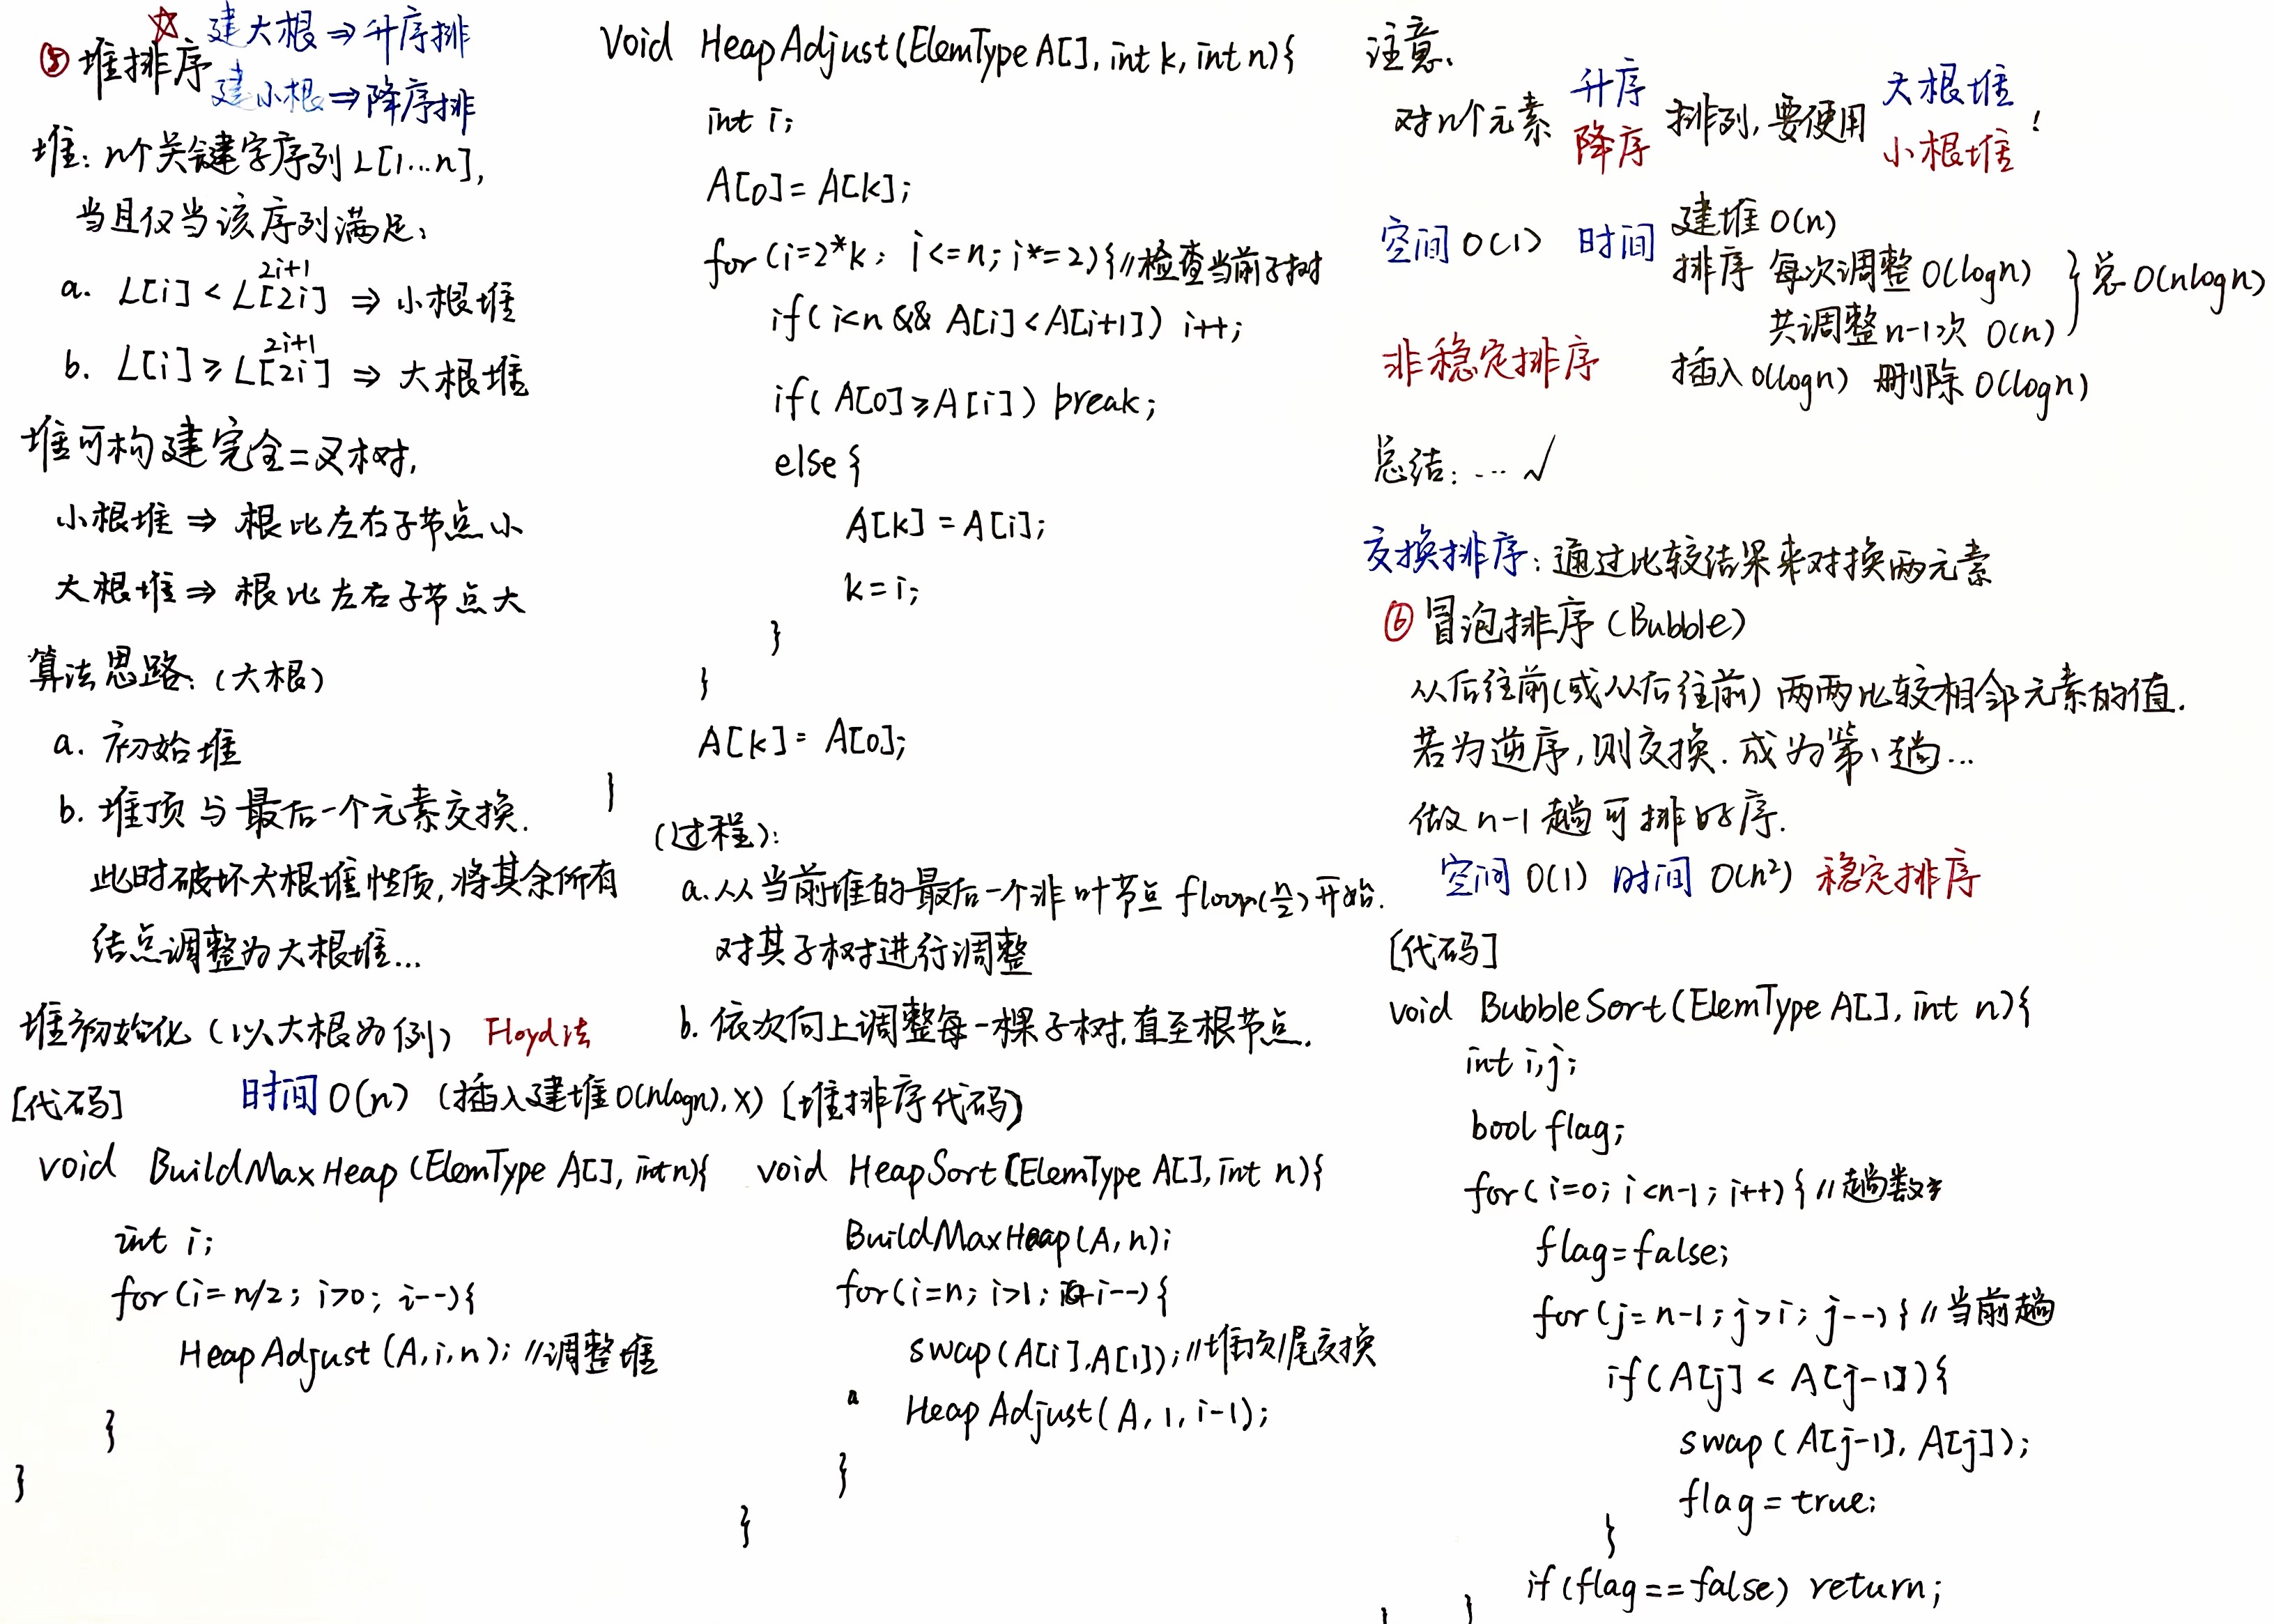 ⑤ 堆排序
☆ 建大根 ⇒ 升序排
建小根 ⇒ 降序排
堆: n个关键字序列 L[1...n],
当且仅当该序列满足:
2i+1
a. L[i] < L[2i] ⇒ 小根堆
2i+1
b. L[i] ≥ L[2i] ⇒ 大根堆
堆可构建完全二叉树,
小根堆 ⇒ 根比左右子节点小
大根堆 ⇒ 根比左右子节点大
算法思路: (大根)
a. 初始堆
b. 堆顶与最后一个元素交换.
此时破坏大根堆性质,将其余所有
结点调整为大根堆...
堆初始化 (以大根为例) Floyd法
[代码] 时间 O(n) (插入建堆O(nlogn),X)
void BuildMaxHeap (ElemType A[], int n){
int i;
for (i = n/2; i>0; i--){
HeapAdjust (A, i, n); //调整堆
}
}
Void HeapAdjust(ElemType A[], int k, int n){
int i;
A[0] = A[k];
for (i=2*k; i<=n; i*=2){ //检查当前子树
if( i<n && A[i]<A[i+1]) i++;
if( A[0]≥A[i]) break;
else {
A[k] = A[i];
k = i;
}
}
A[k] = A[0];
}
(过程):
a. 从当前堆的最后一个非叶节点 floor(n/2) 开始.
对其子树进行调整
b. 依次向上调整每一棵子树,直至根节点.
[堆排序代码]
void HeapSort [ElemType A[], int n){
BuildMaxHeap(A, n);
for(i=n; i>1; i--){
swap(A[i],A[1]); //堆顶/尾交换
HeapAdjust(A, 1, i-1);
}
}
注意:
对n个元素 升序 降序 排列,要使用 大根堆 小根堆 !
空间 O(1) 时间 建堆 O(n)
排序 每次调整 O(logn)
共调整n-1次 O(n) } 总O(nlogn)
非稳定排序 插入 O(logn) 删除 O(logn)
总结: ... √
交换排序: 通过比较结果来对换两元素
⑥ 冒泡排序 (Bubble)
从后往前(或从后往前) 两两比较相邻元素的值.
若为逆序,则交换. 成为第1趟...
做 n-1 趟可排好序.
空间 O(1) 时间 O(n²) 稳定排序
[代码]
void BubbleSort(ElemType A[], int n){
int i,j;
bool flag;
for( i=0; i<n-1; i++) { //趟数
flag = false;
for (j = n-1; j>i; j--) { //当前趟
if( A[j] < A[j-1]){
swap ( A[j-1], A[j]);
flag = true;
}
if (flag == false) return;
} }